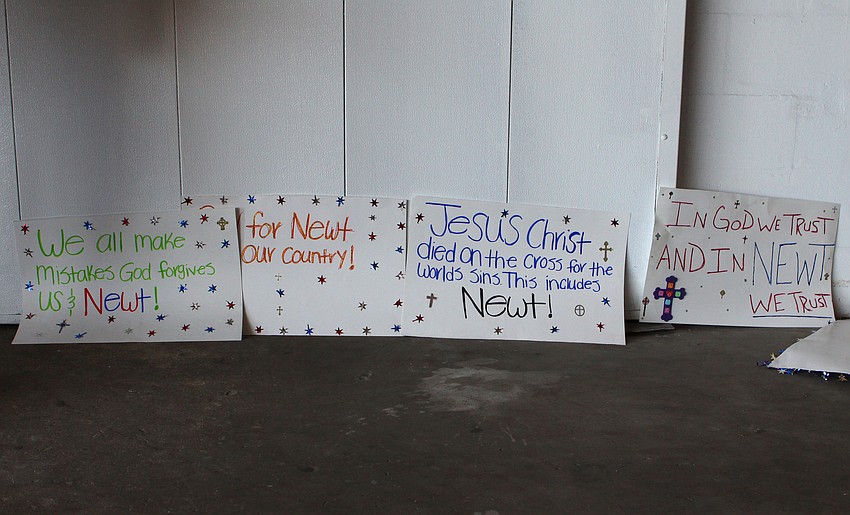 We all make
mistakes God forgives
us & Newt!
for Newt
our country!
Jesus Christ
died on the cross for the
worlds sins. This includes
Newt!
IN GOD WE TRUST
AND IN NEWT
WE TRUST